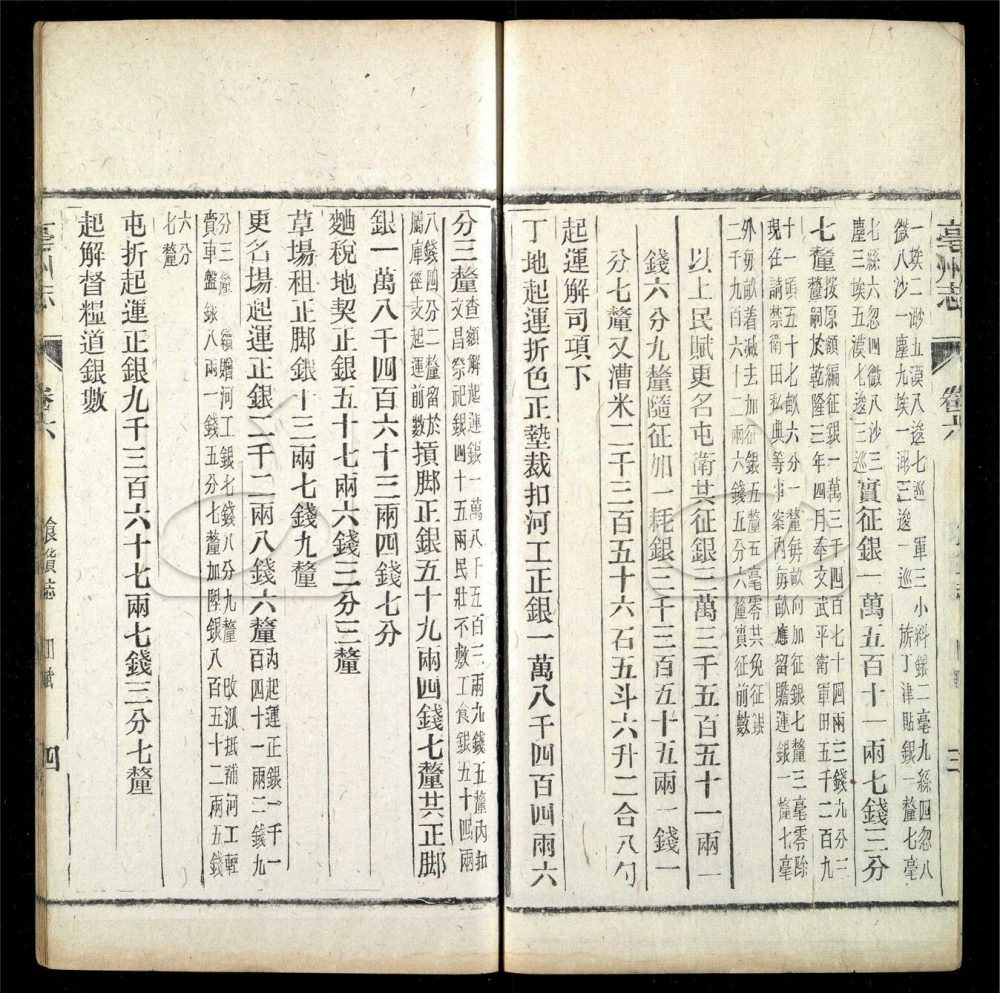 亳州志 卷六 三
一埃二渺五漠八逡七巡 軍三小料銀二毫九絲四忽八
微八沙一塵九埃一渺三逡一巡 族丁津貼銀一釐七毫
七絲六忽四微八沙三實征銀一萬五百十一兩七錢三分
塵三埃五漠七逡三巡
七釐按原額編征銀一萬三千四百七十四兩三錢九分三
釐嗣於乾隆三年四月奉文武平衛軍田五千二百九
十一頃五十七畝六分一釐每畝向加征銀七釐三毫零除
現在請禁衛田私典等事案內每畝應留贍運銀一釐七毫
外每畝着減去加征銀五釐五毫零共免征銀
二千九百六十二兩六錢五分六釐實征前數
以上民賦更名屯衛共征銀三萬三千五百五十一兩一
錢六分九釐隨征加一耗銀三千三百五十五兩一錢一
分七釐又漕米二千三百五十六石五斗六升二合八勺
起運解司項下
丁地起運折色正墊裁扣河工正銀一萬八千四百四兩六
分三釐查額解起運銀一萬八千五百三兩九錢五釐內扣
文昌祭祀銀四十五兩民壯不敷工食銀五十四兩
八錢四分二釐留於損脚正銀五十九兩四錢七釐共正脚
屬庫徑支起運前數
銀一萬八千四百六十三兩四錢七分
麯稅地契正銀五十七兩六錢三分三釐
草場租正脚銀十三兩七錢九釐
更名場起運正銀二千二兩八錢六釐內起運正銀一千一
百四十一兩二錢九
分三釐額贍河工銀七錢八分九釐 改泒抵補河工輕
賫車盤銀八兩一錢五分七釐加陞銀八百五十二兩五錢
六分
七釐
屯折起運正銀九千三百六十七兩七錢三分七釐
起解督糧道銀數
亳州志 卷六 食貨志 田賦 四